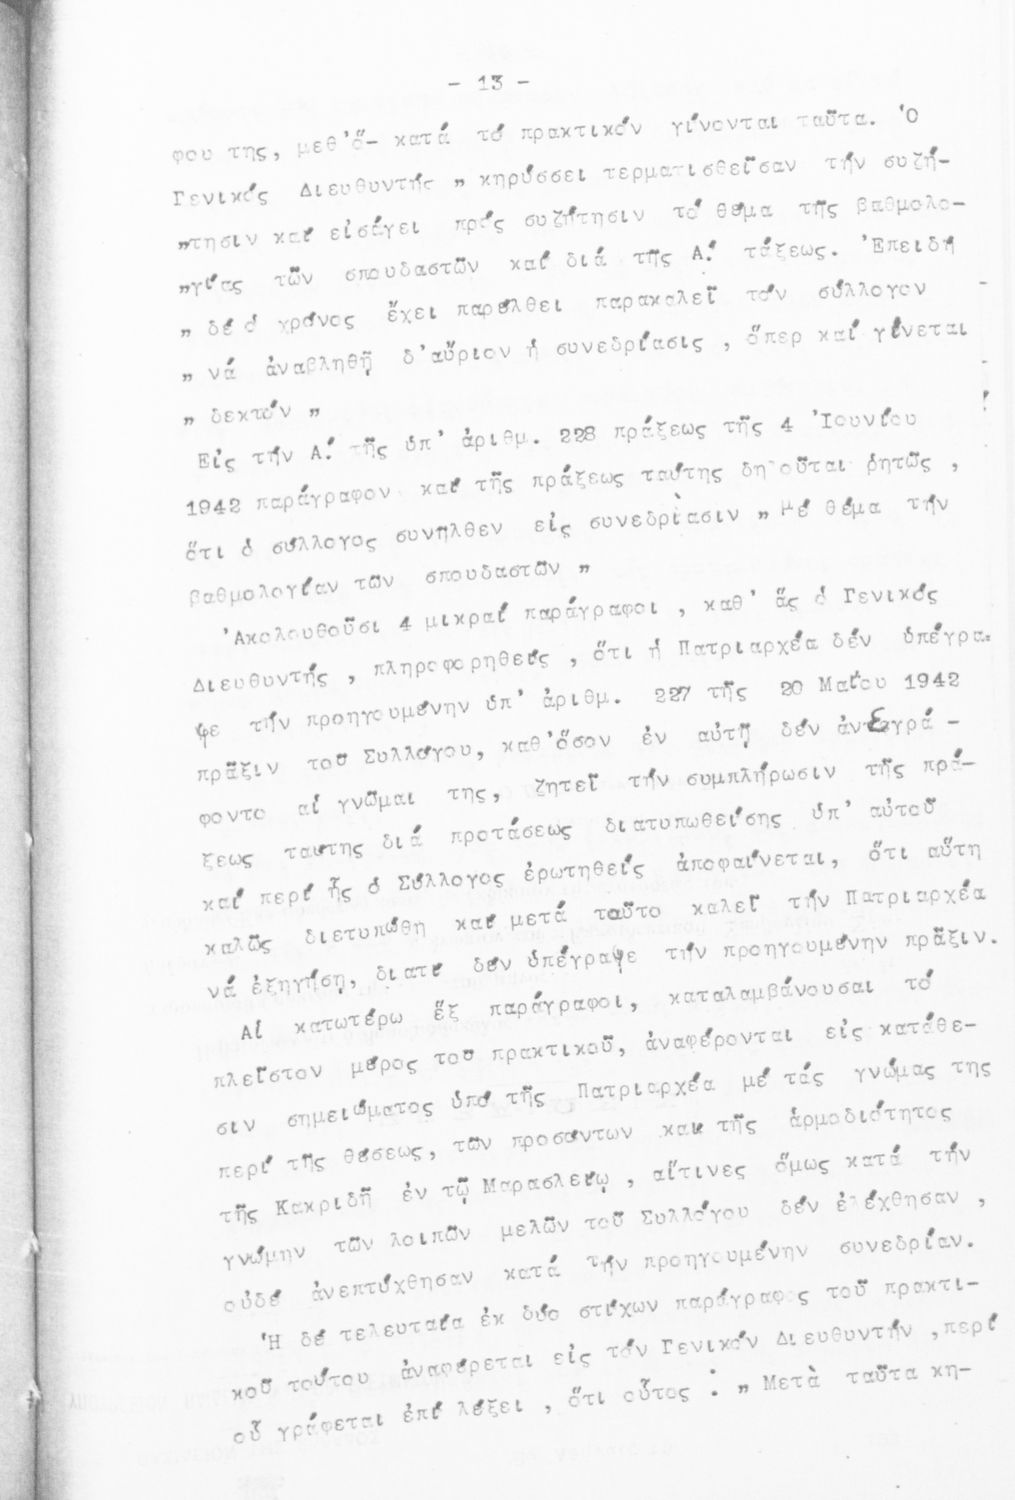 - 13 -
φου της, μεθ'ὅ- κατά τό πρακτικόν γίνονται ταῦτα. Ὁ
Γενικός Διευθυντής „ κηρύσσει τερματισθεῖσαν τήν συζή-
„τησιν καί εἰσάγει πρός συζήτησιν τό θέμα τῆς βαθμολο-
„γίας τῶν σπουδαστῶν καί διά τῆς Α! τάξεως. Ἐπειδή
„ δέ ὁ χρόνος ἔχει παρέλθει παρακαλεῖ τόν σύλλογον
„ νά ἀναβληθῇ δ'αὔριον ἡ συνεδρίασις , ὅπερ καί γίνεται
„ δεκτόν „
Εἰς τήν Α! τῆς ὑπ' ἀριθμ. 228 πράξεως τῆς 4 Ἰουνίου
1942 παράγραφον καί τῆς πράξεως ταύτης δηλοῦται ῥητῶς ,
ὅτι ὁ σύλλογος συνῆλθεν εἰς συνεδρίασιν „ Μέ θέμα τήν
βαθμολογίαν τῶν σπουδαστῶν „
Ἀκολουθοῦσι 4 μικραί παράγραφοι , καθ' ἅς ὁ Γενικός
Διευθυντής , πληροφορηθείς , ὅτι ἡ Πατριαρχέα δέν ὑπέγρα-
ψε τήν προηγουμένην ὑπ' ἀριθμ. 227 τῆς 20 Μαΐου 1942
πρᾶξιν τοῦ Συλλόγου, καθ'ὅσον ἐν αὐτῇ δέν ἀνεγρά -
φοντο αἱ γνῶμαι της, ζητεῖ τήν συμπλήρωσιν τῆς πρά-
ξεως ταύτης διά προτάσεως διατυπωθείσης ὑπ' αὐτοῦ
καί περί ἧς ὁ Σύλλογος ἐρωτηθείς ἀποφαίνεται, ὅτι αὕτη
καλῶς διετυπώθη καί μετά ταῦτο καλεῖ τήν Πατριαρχέα
νά ἐξηγήσῃ, διατί δέν ὑπέγραψε τήν προηγουμένην πρᾶξιν.
Αἱ κατωτέρω ἕξ παράγραφοι, καταλαμβάνουσαι τό
πλεῖστον μέρος τοῦ πρακτικοῦ, ἀναφέρονται εἰς κατάθε-
σιν σημειώματος ὑπό τῆς Πατριαρχέα μέ τάς γνώμας της
περί τῆς θέσεως, τῶν προσόντων καί τῆς ἁρμοδιότητος
τῆς Κακριδῆ ἐν τῷ Μαρασλείῳ , αἵτινες ὅμως κατά τήν
γνώμην τῶν λοιπῶν μελῶν τοῦ Συλλόγου δέν ἐλέχθησαν ,
οὐδέ ἀνεπτύχθησαν κατά τήν προηγουμένην συνεδρίαν.
Ἡ δέ τελευταία ἐκ δύο στίχων παράγραφος τοῦ πρακτι-
κοῦ τούτου ἀναφέρεται εἰς τόν Γενικόν Διευθυντήν ,περί
οὗ γράφεται ἐπί λέξει , ὅτι οὗτος : „ Μετὰ ταῦτα κη-